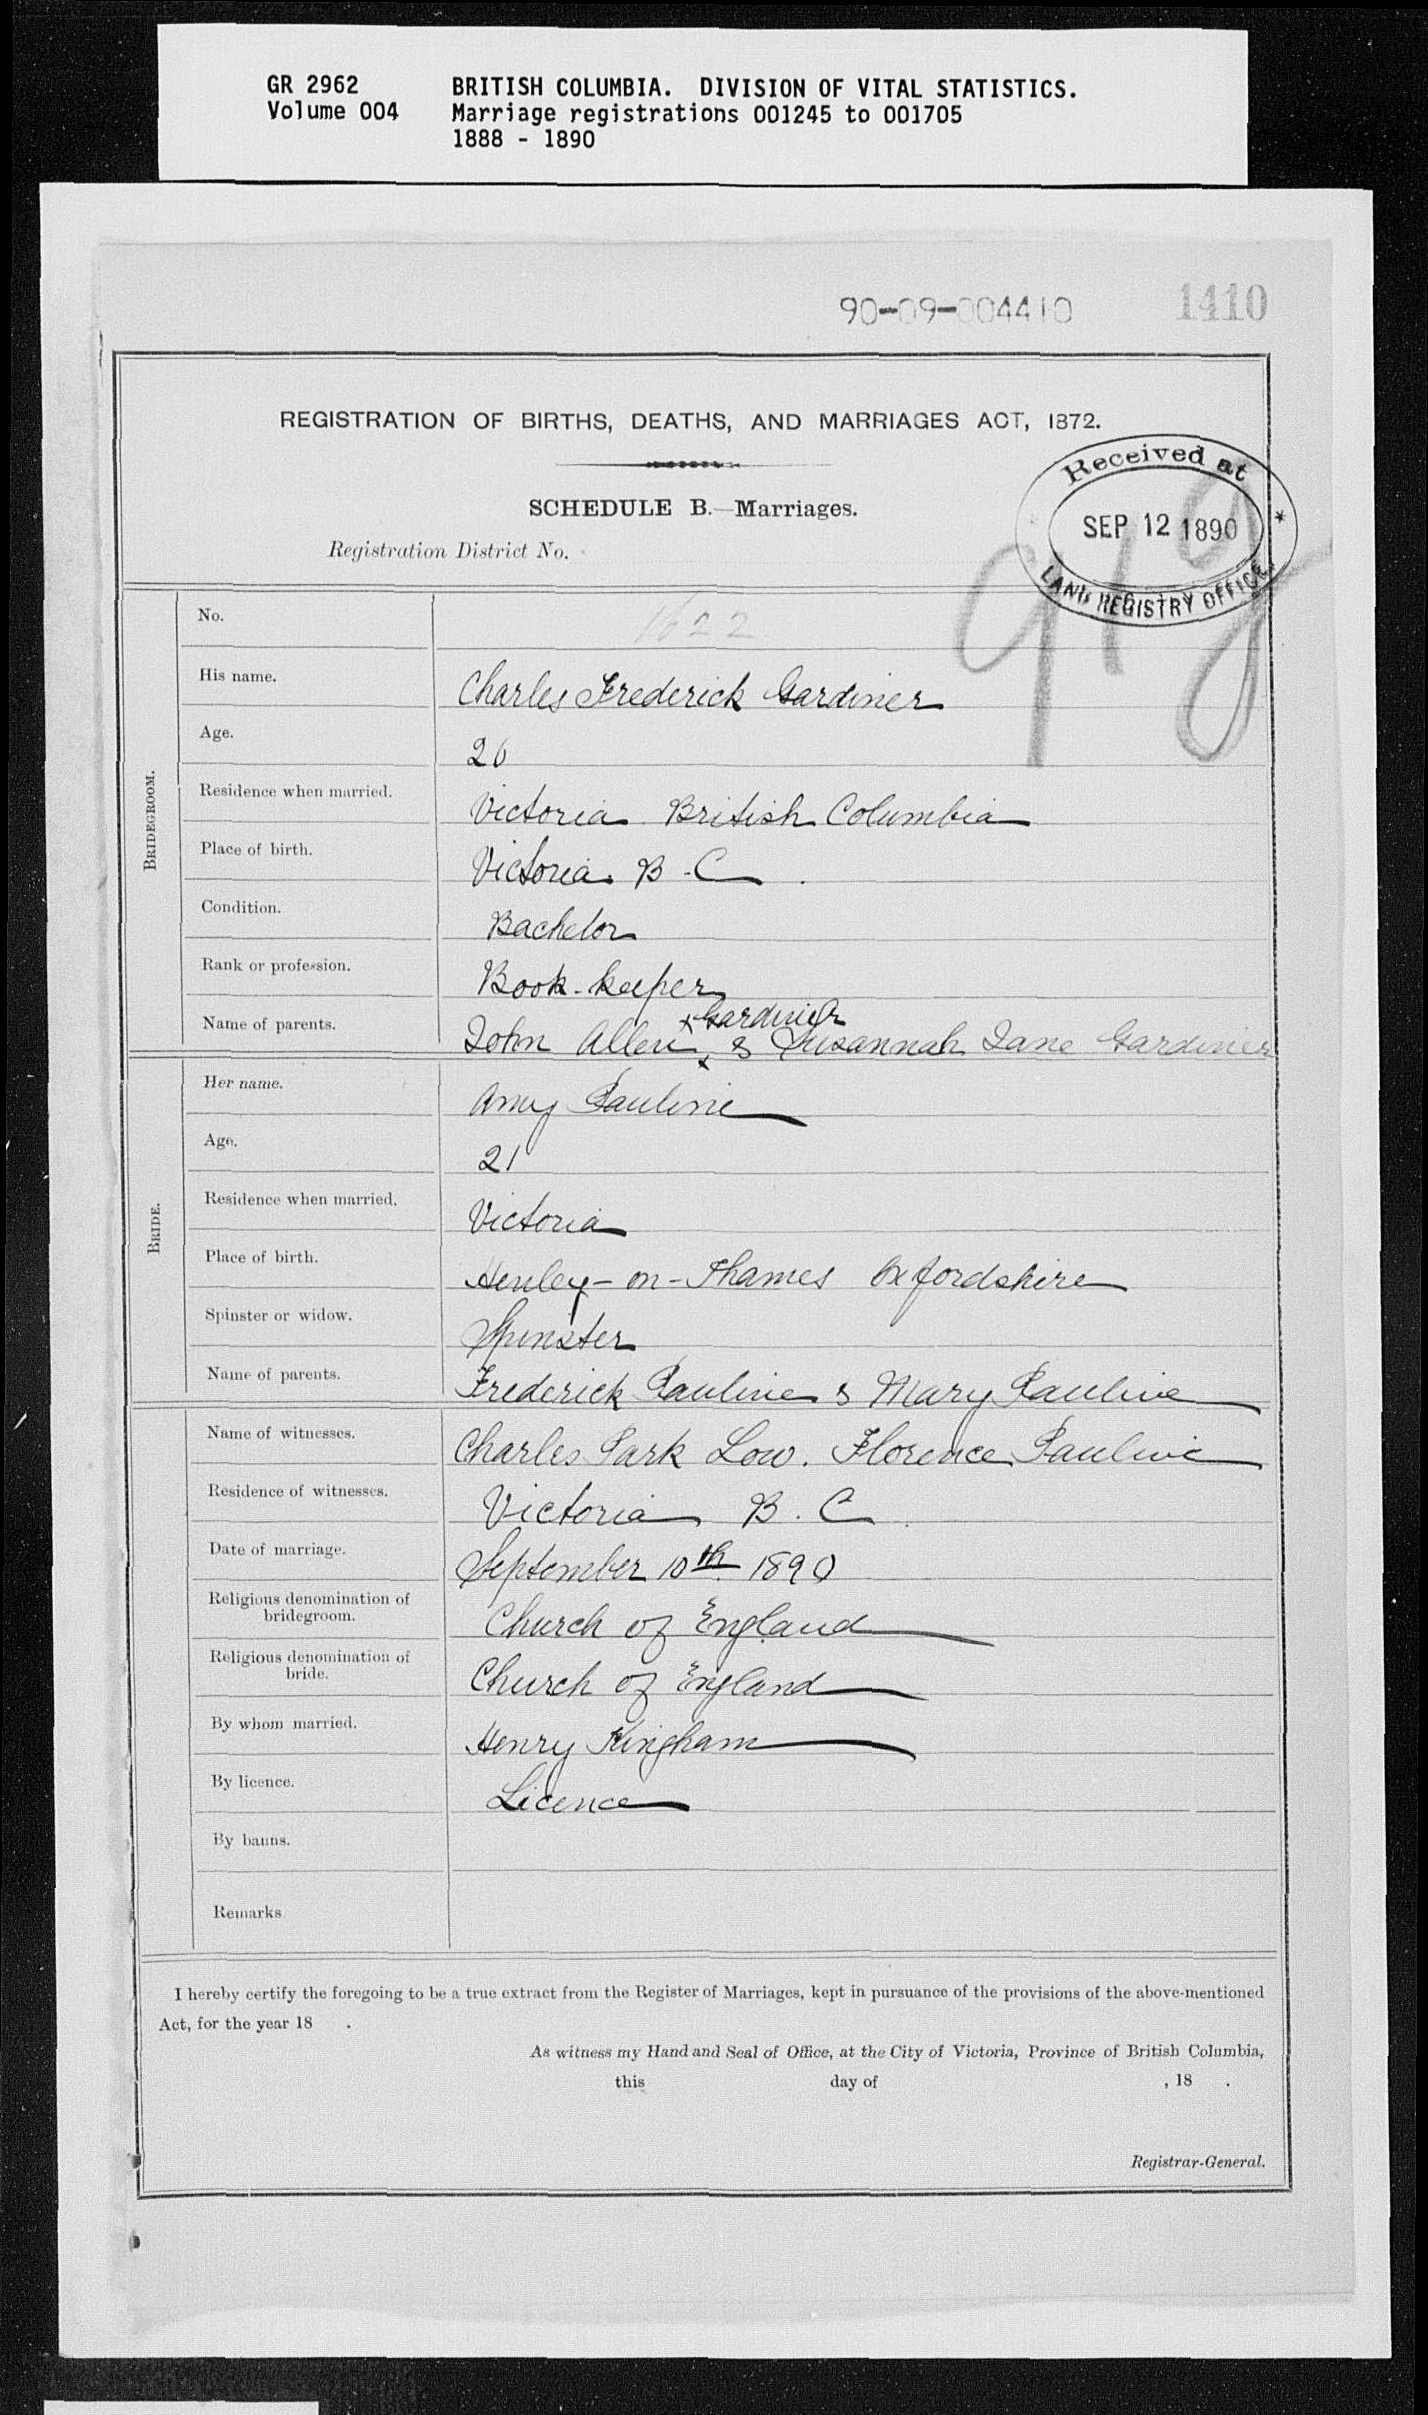 GR 2962 BRITISH COLUMBIA. DIVISION OF VITAL STATISTICS.
Volume 004 Marriage registrations 001245 to 001705
1888 - 1890
90-09-004410 1410
REGISTRATION OF BIRTHS, DEATHS, AND MARRIAGES ACT, 1872.
Received at
SEP 12 1890
LAND REGISTRY OFFICE
SCHEDULE B.—Marriages.
Registration District No.
BRIDEGROOM.
No. 1622
His name. Charles Frederick Gardiner
Age. 26
Residence when married. Victoria British Columbia
Place of birth. Victoria B. C.
Condition. Bachelor
Rank or profession. Book-keeper
x Gardiner
Name of parents. John Allen x & Susannah Jane Gardiner
BRIDE.
Her name. Amy Pauline
Age. 21
Residence when married. Victoria
Place of birth. Henley-on-Thames Oxfordshire
Spinster or widow. Spinster
Name of parents. Frederick Pauline & Mary Pauline
Name of witnesses. Charles Park Low. Florence Pauline
Residence of witnesses. Victoria B. C.
Date of marriage. September 10th 1890
Religious denomination of bridegroom. Church of England
Religious denomination of bride. Church of England
By whom married. Henry Kingham
By licence. Licence
By banns.
Remarks
I hereby certify the foregoing to be a true extract from the Register of Marriages, kept in pursuance of the provisions of the above-mentioned
Act, for the year 18 .
As witness my Hand and Seal of Office, at the City of Victoria, Province of British Columbia,
this day of , 18 .
Registrar-General.